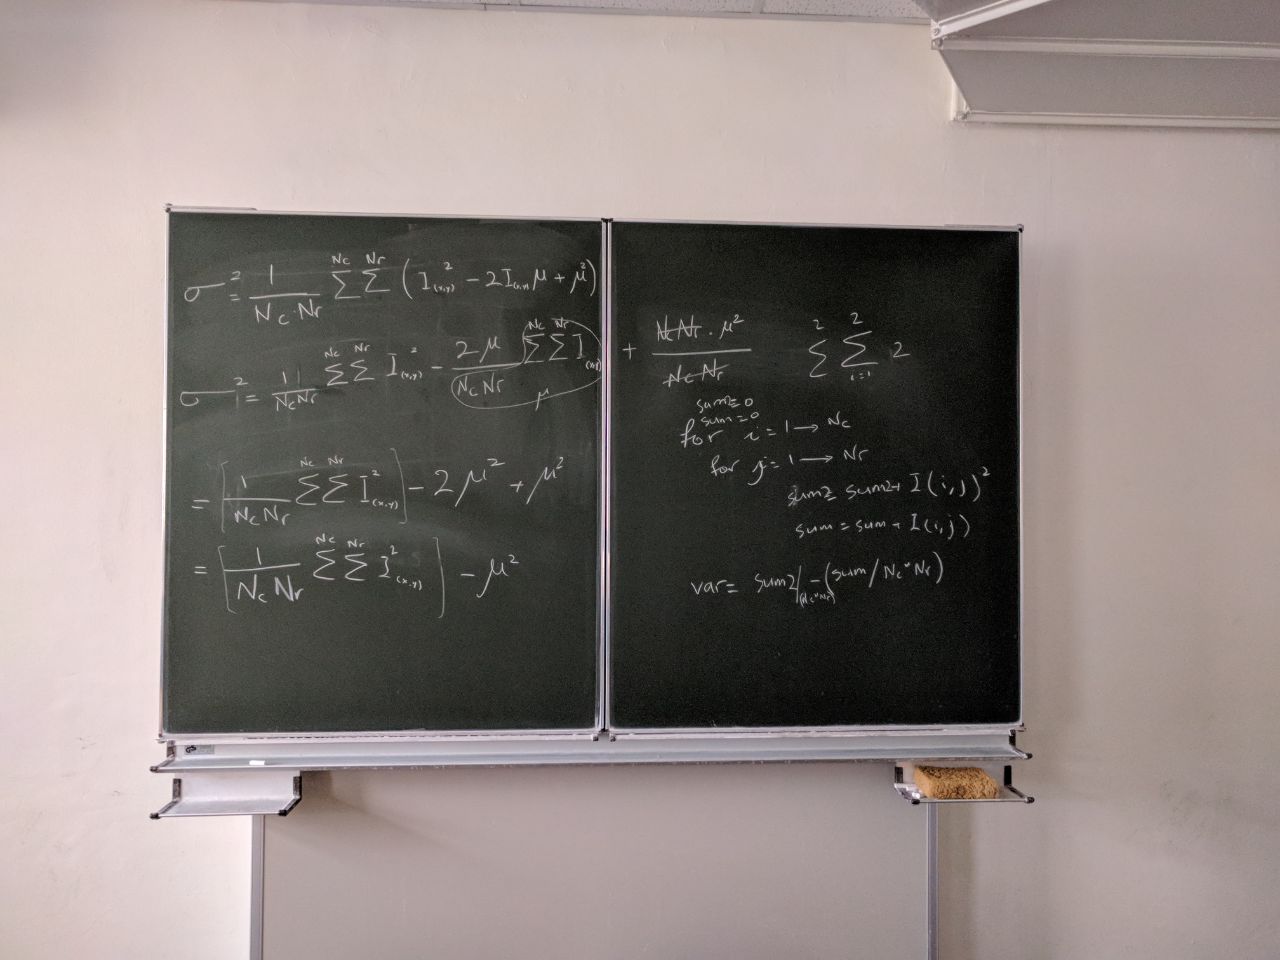 σ² = 1/(Nc·Nr) ∑^Nc ∑^Nr (I²(x,y) − 2I(x,y) μ + μ²)
σ² = 1/(Nc Nr) ∑^Nc ∑^Nr I²(x,y) − 2μ/(Nc Nr) ∑^Nc ∑^Nr I(x,y) + Nc Nr · μ²/(Nc Nr)
μ
= [1/(Nc Nr) ∑^Nc ∑^Nr I²(x,y)] − 2μ² + μ²
= [1/(Nc Nr) ∑^Nc ∑^Nr I²(x,y)] − μ²
∑^2 ∑_{i=1}^2 2
sum2=0
sum=0
for i=1 → Nc
for j=1 → Nr
sum2= sum2+ I(i,j)²
sum = sum + I(i,j)
var= sum2/(Nc*Nr) − (sum/Nc*Nr)